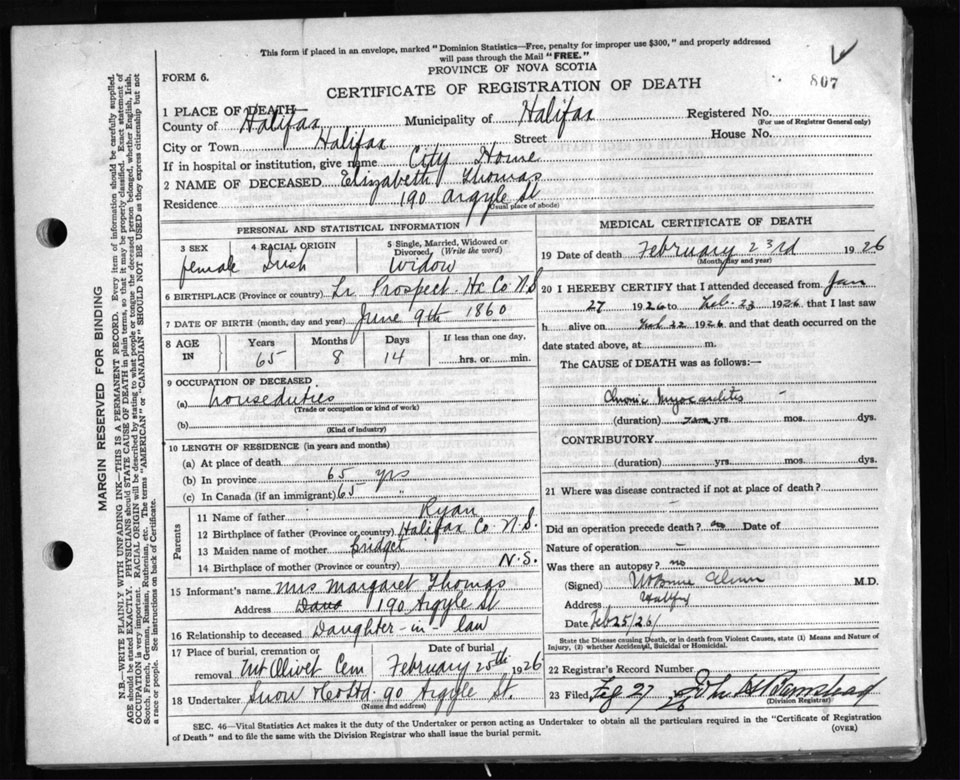 This form if placed in an envelope, marked "Dominion Statistics—Free, penalty for improper use $300," and properly addressed
will pass through the Mail "FREE."
PROVINCE OF NOVA SCOTIA
FORM 6.
807
CERTIFICATE OF REGISTRATION OF DEATH
1 PLACE OF DEATH—
County of Halifax Municipality of Halifax Registered No.
(For use of Registrar General only)
City or Town Halifax Street House No.
If in hospital or institution, give name City Home
2 NAME OF DECEASED Elizabeth Thomas
Residence 190 Argyle St
(Usual place of abode)
PERSONAL AND STATISTICAL INFORMATION
3 SEX 4 RACIAL ORIGIN 5 Single, Married, Widowed or
Divorced, (Write the word)
female Irish Widow
6 BIRTHPLACE (Province or country) Lr Prospect Hx Co N.S
7 DATE OF BIRTH (month, day and year) June 9th 1860
8 AGE IN Years Months Days If less than one day,
65 8 14 hrs. or min.
9 OCCUPATION OF DECEASED
(a) houseduties
(Trade or occupation or kind of work)
(b)
(Kind of industry)
10 LENGTH OF RESIDENCE (in years and months)
(a) At place of death
(b) In province 65 yrs
(c) In Canada (if an immigrant) 65 "
Parents
11 Name of father Ryan
12 Birthplace of father (Province or country) Halifax Co N.S.
13 Maiden name of mother Bridget
14 Birthplace of mother (Province or Country) N.S.
15 Informant's name Mrs Margaret Thomas
Address 190 Argyle St
16 Relationship to deceased Daughter-in law
17 Place of burial, cremation or removal Date of burial
Mt Olivet Cem February 25th 1926
18 Undertaker Snow & Co Ltd. 90 Argyle St.
(Name and address)
MEDICAL CERTIFICATE OF DEATH
19 Date of death February 23rd 1926
(Month, day and year)
20 I HEREBY CERTIFY that I attended deceased from Jan
27 1926 to Feb. 23 1926 that I last saw
h alive on Feb 22 1926 and that death occurred on the
date stated above, at m.
The CAUSE of DEATH was as follows:—
Chronic Myocarditis
(duration) yrs. mos. dys.
CONTRIBUTORY
(duration) yrs. mos. dys.
21 Where was disease contracted if not at place of death?
Did an operation precede death? no Date of
Nature of operation
Was there an autopsy? no
(Signed) M.D.
Address Halifax
Date Feb 25/26/
State the Disease causing Death, or in death from Violent Causes, state (1) Means and Nature of
Injury, (2) whether Accidental, Suicidal or Homicidal.
22 Registrar's Record Number
23 Filed 27 26
(Division Registrar)
SEC. 46—Vital Statistics Act makes it the duty of the Undertaker or person acting as Undertaker to obtain all the particulars required in the "Certificate of Registration
of Death" and to file the same with the Division Registrar who shall issue the burial permit.
(OVER)
MARGIN RESERVED FOR BINDING
N.B.—WRITE PLAINLY WITH UNFADING INK—THIS IS A PERMANENT RECORD. Every item of information should be carefully supplied.
AGE should be stated EXACTLY. PHYSICIANS should STATE CAUSE OF DEATH in plain terms, so that it may be properly classified. Exact statement of
OCCUPATION is very important. RACIAL ORIGIN will be described by stating to what people or tongue the deceased person belonged, whether English, Irish,
Scotch, French, German, Russian, Ruthenian, etc. The terms "AMERICAN" or "CANADIAN" SHOULD NOT BE USED as they express citizenship but not
a race or people. See instructions on back of Certificate.